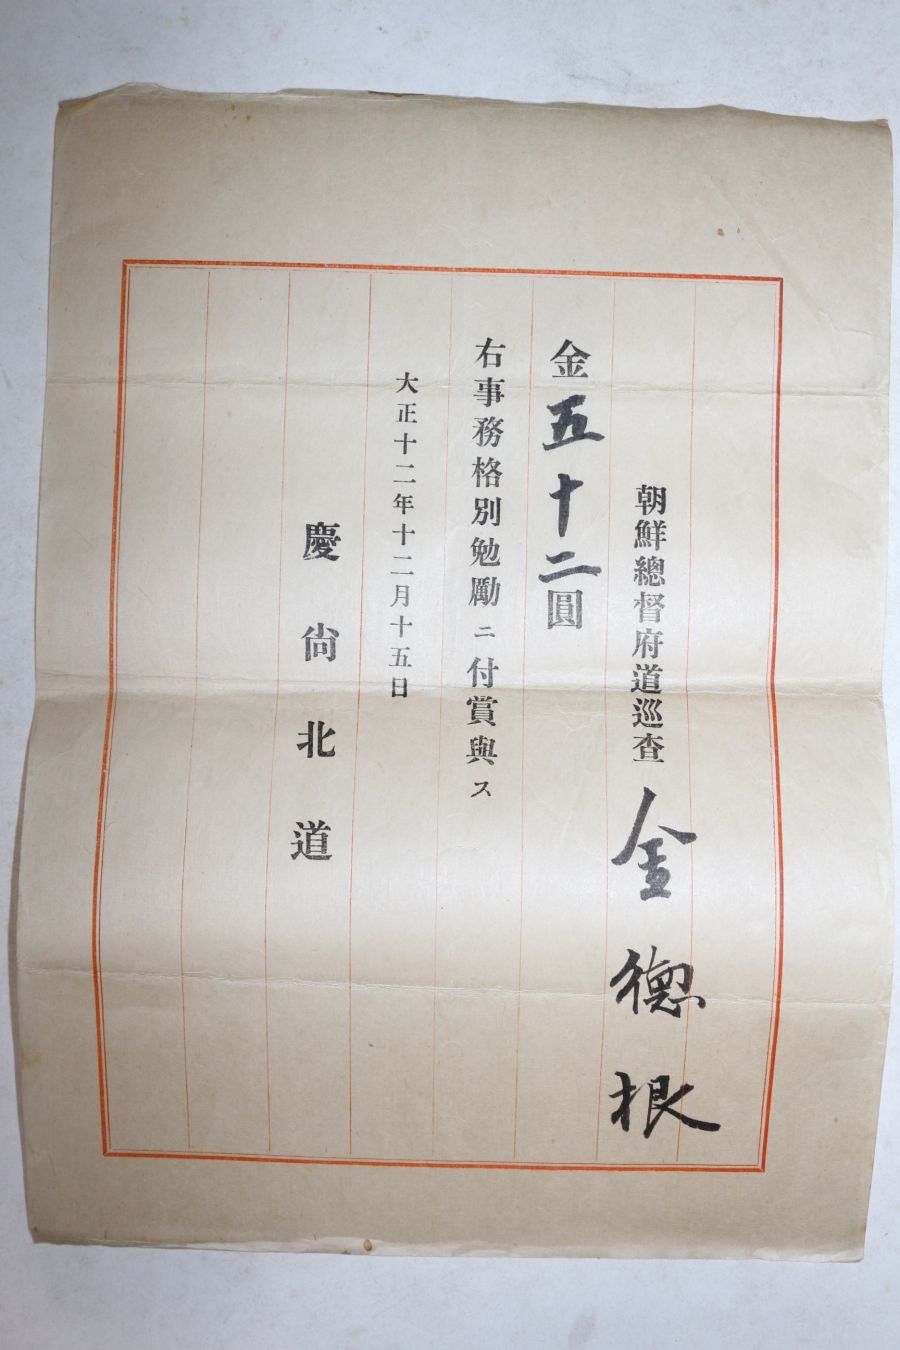 朝鮮總督府道巡査 金德根
金五十二圓
右事務格別勉勵ニ付賞與ス
大正十二年十二月十五日
慶尙北道